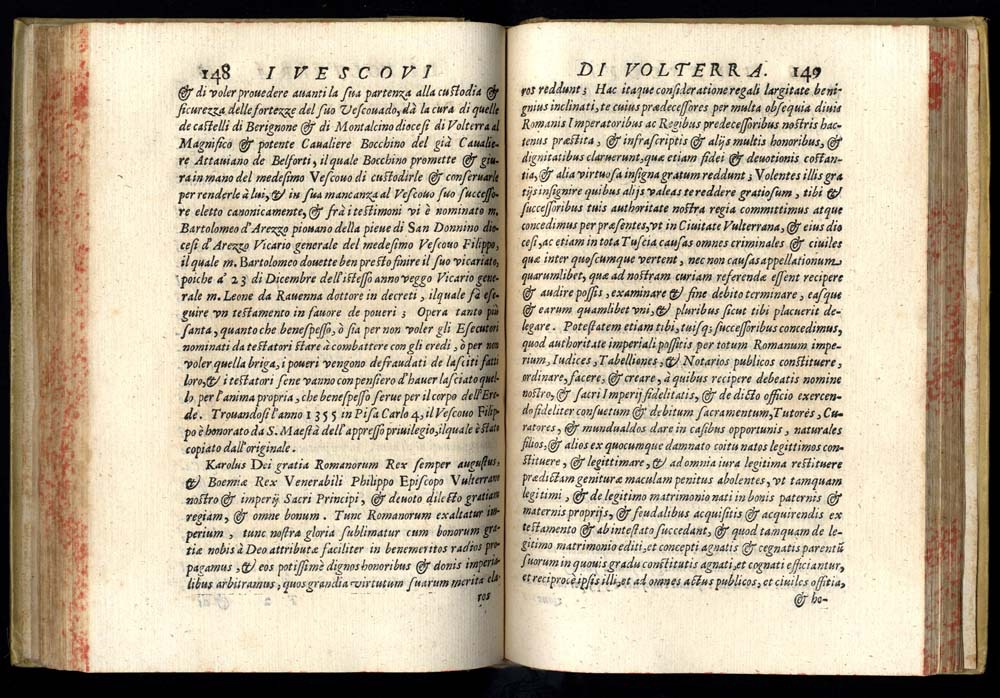 148 I VESCOVI
& di voler prouedere auanti la sua partenza alla custodia &
sicurezza delle fortezze del suo Vescouado, dà la cura di quelle
de castelli di Berignone & di Montalcino diocesi di Volterra al
Magnifico & potente Caualiere Bocchino del già Caualie-
re Attauiano de Belforti, il quale Bocchino promette & giu-
ra in mano del medesimo Vescouo di custodirle & conseruarle
per renderle à lui, & in sua mancanza al Vescouo suo successo-
re eletto canonicamente, & frà i testimoni vi è nominato m.
Bartolomeo d'Arezzo piouano della pieue di San Donnino dio-
cesi d'Arezzo Vicario generale del medesimo Vescouo Filippo,
il quale m. Bartolomeo douette ben presto finire il suo vicariato,
poiche a' 23 di Dicembre dell'istesso anno veggo Vicario gene-
rale m. Leone da Rauenna dottore in decreti, il quale fà ese-
guire vn testamento in fauore de poueri; Opera tanto più
santa, quanto che benespesso, ò sia per non voler gli Esecutori
nominati da testatori stare à combattere con gli eredi, ò per non
voler quella briga, i poueri vengono defraudati de lasciti fatti
loro, & i testatori sene vanno con pensiero d'hauer lasciato quel-
lo per l'anima propria, che benespesso serue per il corpo dell'Ere-
de. Trouandosi l'anno 1355 in Pisa Carlo 4, il Vescouo Filip-
po è honorato da S. Maestà dell'appresso priuilegio, il quale è stato
copiato dall'originale.
Karolus Dei gratia Romanorum Rex semper augustus,
& Boemiæ Rex Venerabili Philippo Episcopo Vulterrano
nostro & imperÿ Sacri Principi, & deuoto dilecto gratiam
regiam, & omne bonum. Tunc Romanorum exaltatur im-
perium, tunc nostra gloria sublimatur cum bonorum gra-
tiæ nobis à Deo attributæ faciliter in benemeritos radios pro-
pagamus, & eos potissimè dignos honoribus & donis imperia-
libus arbitramus, quos grandia virtutum suarum merita cla-
ros
DI VOLTERRA. 149
ros reddunt; Hac itaque consideratione regali largitate beni-
gnius inclinati, te cuius prædecessores per multa obsequia diuis
Romanis Imperatoribus ac Regibus predecessoribus nostris hac-
tenus præstita, & infrascriptis & alÿs multis honoribus, &
dignitatibus claruerunt, quæ etiam fidei & deuotionis costan-
tia, & alia virtuosa insigna gratum reddunt; Volentes illis gra
tÿs insignire quibus alÿs valeas te reddere gratiosum, tibi &
successoribus tuis authoritate nostra regia committimus atque
concedimus per præsentes, vt in Ciuitate Vulterrana, & eius dio
cesi, ac etiam in tota Tuscia causas omnes criminales & ciuiles
quæ inter quoscumque vertent, nec non causas appellationum
quarumlibet, quæ ad nostram curiam referendæ essent recipere
& audire possis, examinare & fine debito terminare, easque
& earum quamlibet vni, & pluribus sicut tibi placuerit de-
legare. Potestatem etiam tibi, tuisq; successoribus concedimus,
quod authoritate imperiali possitis per totum Romanum impe-
rium, Iudices, Tabelliones, & Notarios publicos constituere,
ordinare, facere, & creare, à quibus recipere debeatis nomine
nostro, & sacri Imperÿ fidelitatis, & de dicto officio exercen-
do fideliter consuetum & debitum sacramentum, Tutores, Cu-
ratores, & mundualdos dare in casibus opportunis, naturales
filios, & alios ex quocumque damnato coitu natos legittimos con-
stituere, & legittimare, & ad omnia iura legitima restituere
prædictam genituræ maculam penitus abolentes, vt tamquam
legitimi, & de legitimo matrimonio nati in bonis paternis &
maternis proprÿs, & feudalibus acquisitis & acquirendis ex
testamento & ab intestato succedant, & quod tamquam de le-
gitimo matrimonio editi, et concepti agnatis & cegnatis parentũ
suorum in quouis gradu constitutis agnati, et cognati efficiantur,
et reciprocè ipsis illi, et ad omnes actus publicos, et ciuiles offitia,
& ho-